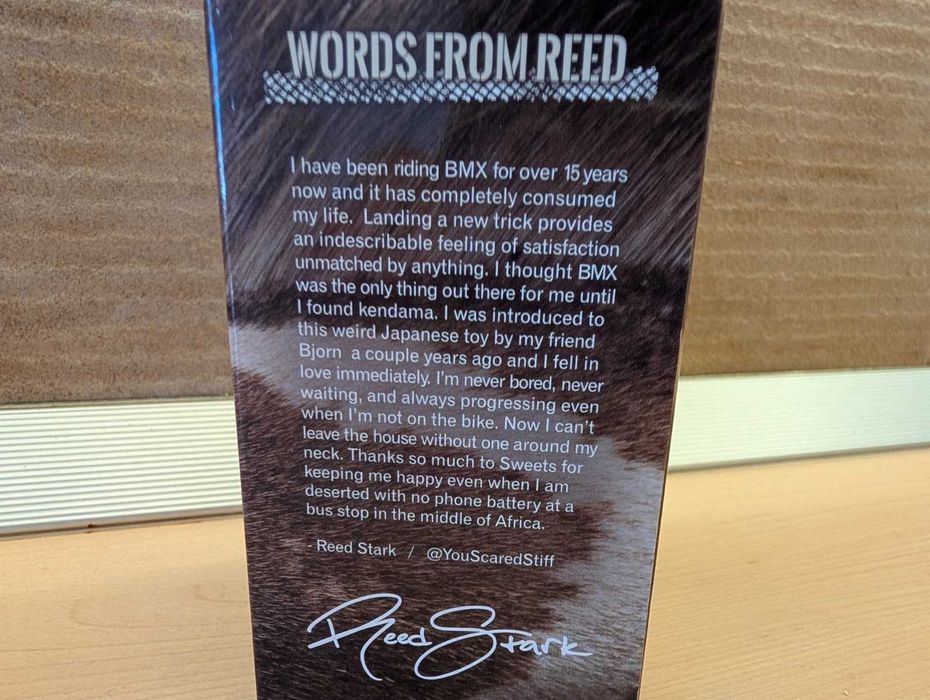 WORDS FROM REED
I have been riding BMX for over 15 years
now and it has completely consumed
my life. Landing a new trick provides
an indescribable feeling of satisfaction
unmatched by anything. I thought BMX
was the only thing out there for me until
I found kendama. I was introduced to
this weird Japanese toy by my friend
Bjorn a couple years ago and I fell in
love immediately. I'm never bored, never
waiting, and always progressing even
when I'm not on the bike. Now I can't
leave the house without one around my
neck. Thanks so much to Sweets for
keeping me happy even when I am
deserted with no phone battery at a
bus stop in the middle of Africa.
- Reed Stark / @YouScaredStiff
Reed Stark